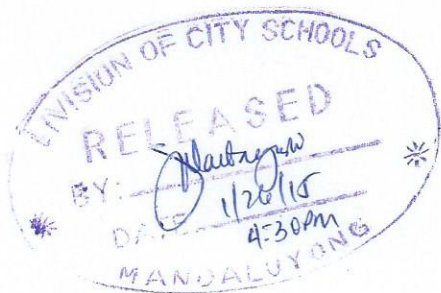 DIVISION OF CITY SCHOOLS
RELEASED
BY:
DATE 1/26/15
4:30PM
MANDALUYONG